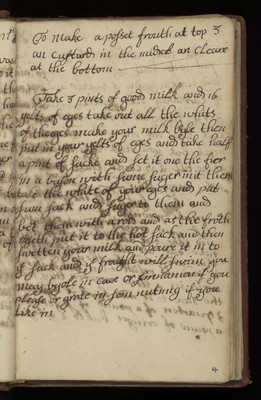 To make a posset frouth at top &
an Custard in the midest an Cleare
at the bottom
Take 3 pints of good milk and 16
yelts of eges take out all the whits
of the eges make your milk byle then
put in your yelts of eges and take half
a pint of sacke and set it one the fier
in a bason with some suger in it then
take the white of your eges and put
som sack and suger to them and
bet them with a rod and as the froth
riseth put it to the hot sack and then
sweeten your milk and poure it in to
ye sack and ye frought will swim you
may byle in cace or sinnamon if you
please or grate in som nutmig if you
like in